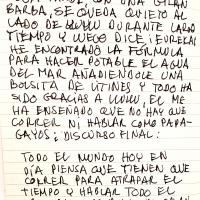 CON UNA GRAN
BARBA, SE QUEDA QUIETO AL
LADO DE LULU DURANTE LARGO
TIEMPO Y LUEGO DICE ¡EUREKA!
HE ENCONTRADO LA FÓRMULA
PARA HACER POTABLE EL AGUA
DEL MAR AÑADIENDOLE UNA
BOLSITA DE UTINES Y TODO HA
SIDO GRACIAS A LULU, EL ME
HA ENSEÑADO QUE NO HAY QUE
CORRER NI HABLAR COMO PAPA-
GAYOS; DISCURSO FINAL:
TODO EL MUNDO HOY EN
DÍA PIENSA QUE TIENEN QUE
CORRER PARA ATRAPAR EL
TIEMPO Y HABLAR TODO EL